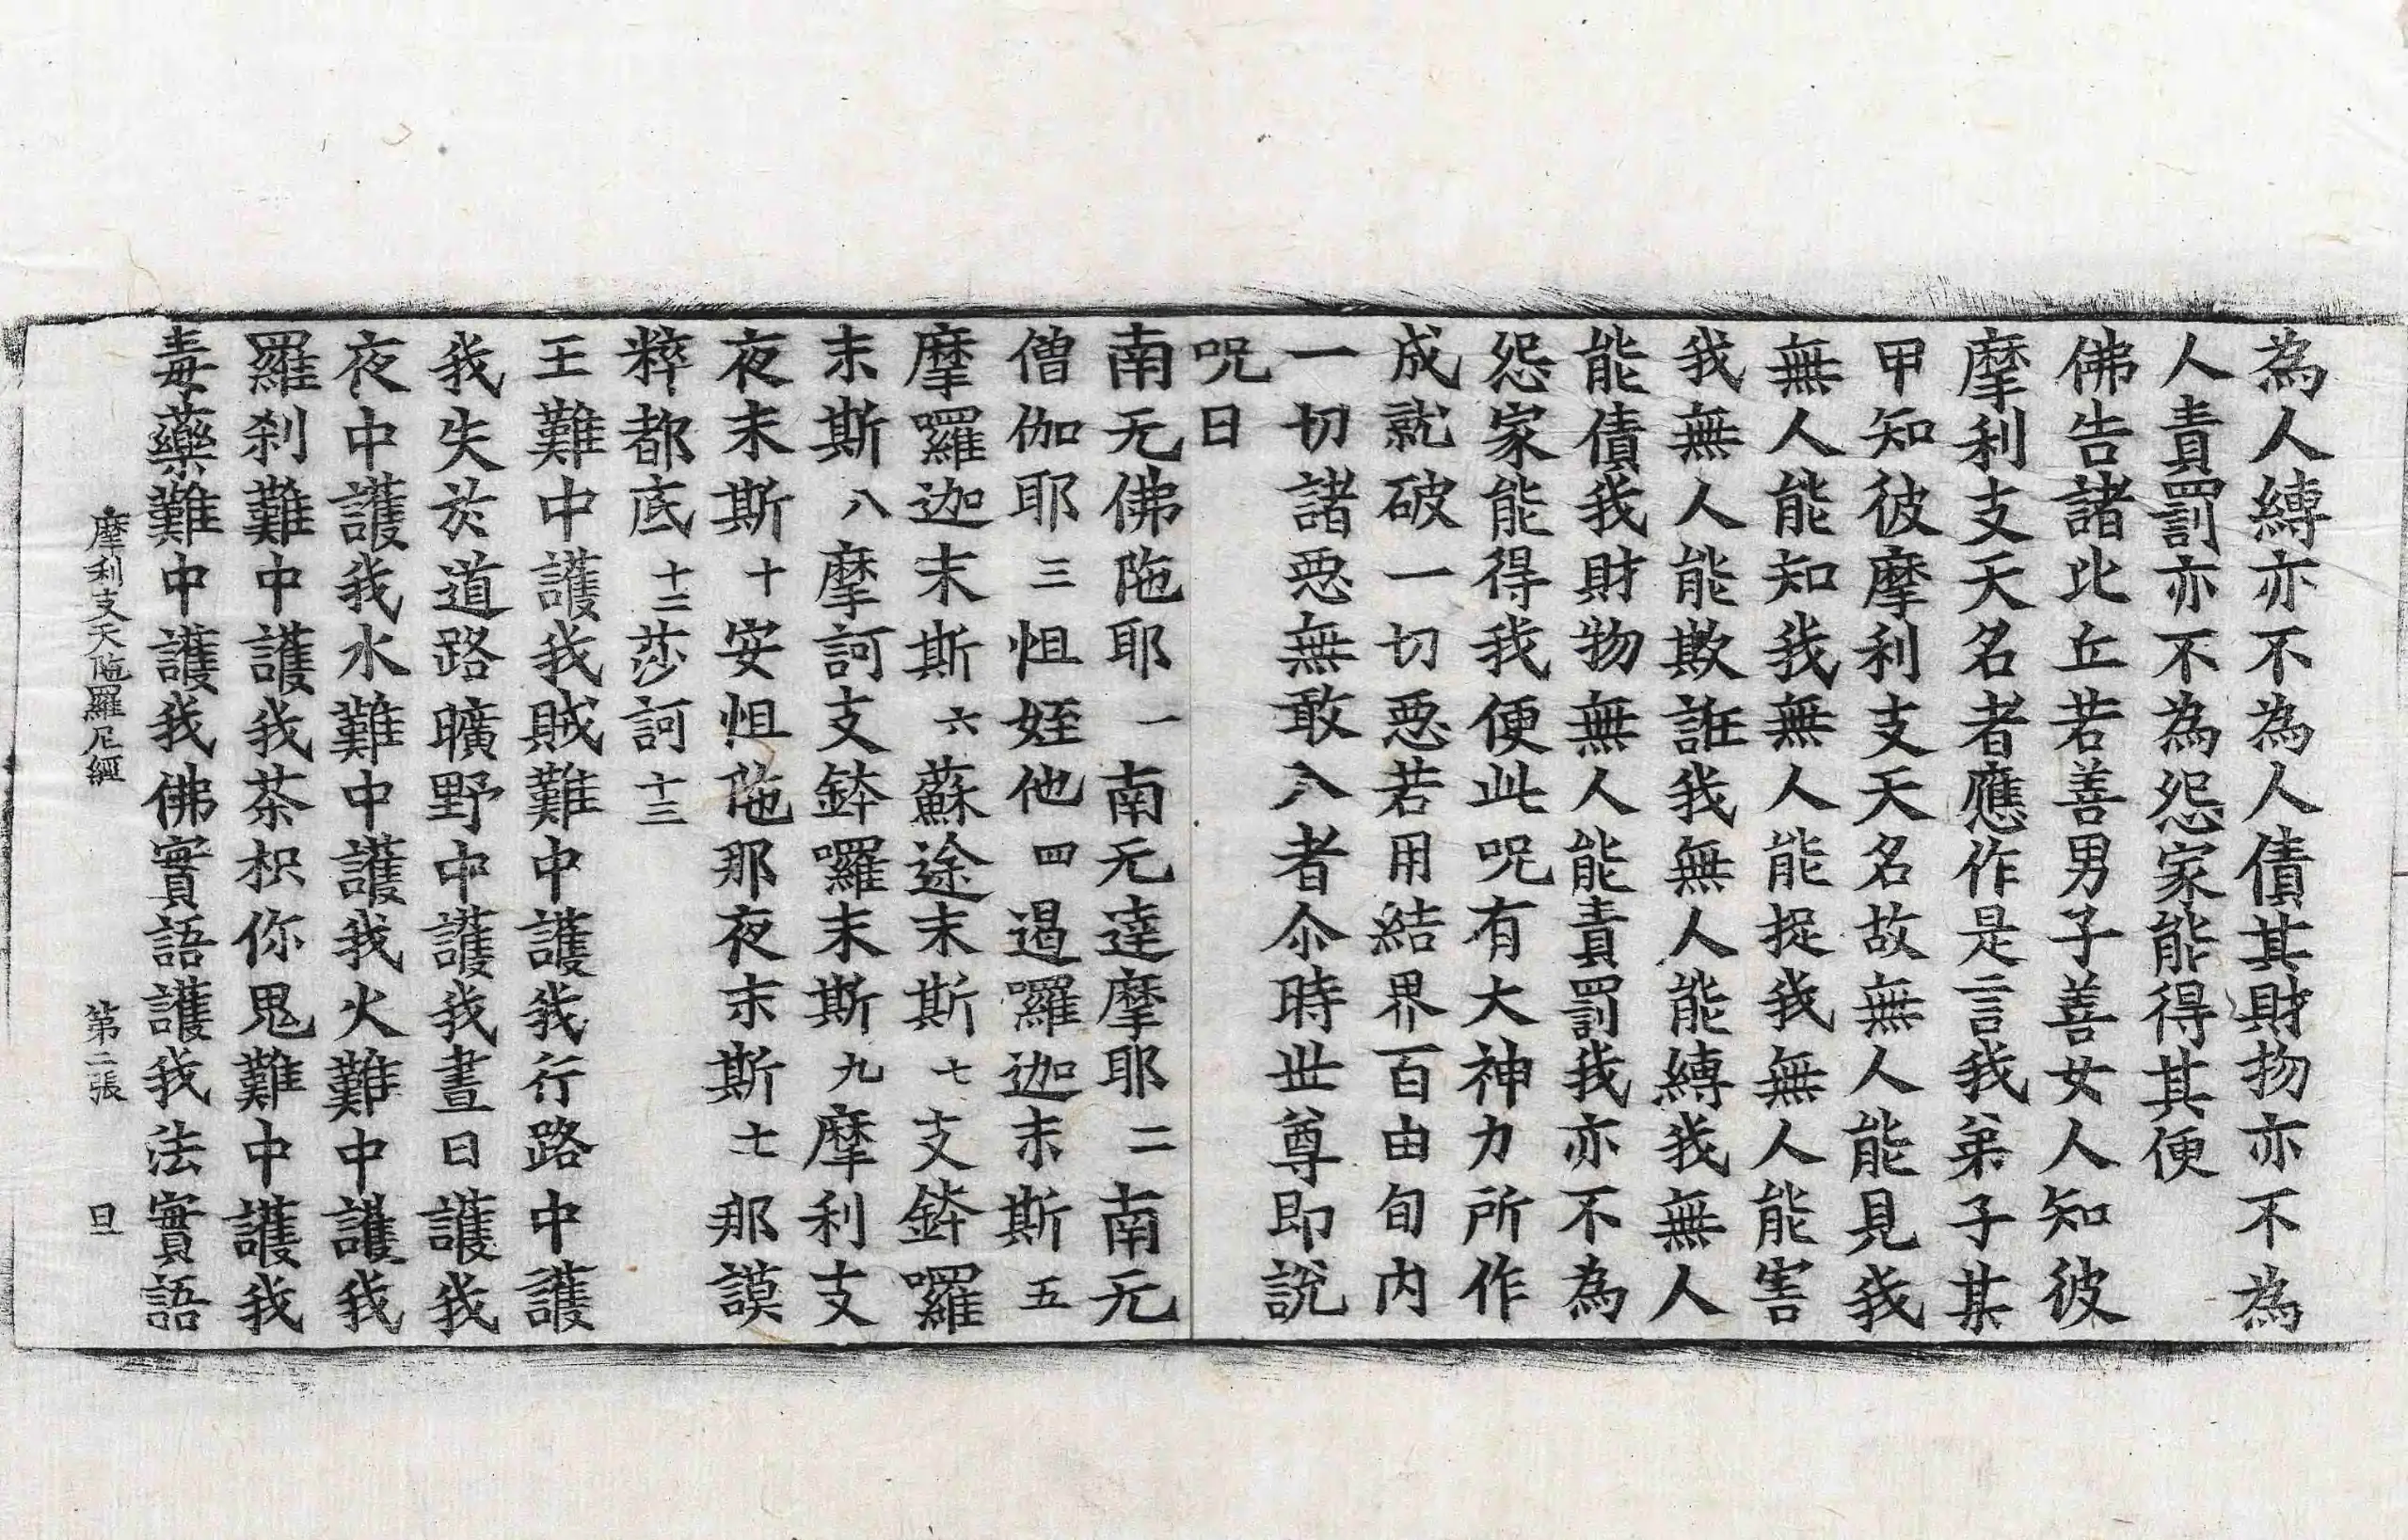 為人縛亦不為人債其財物亦不為
人責罰亦不為怨家能得其便
佛告諸比丘若善男子善女人知彼
摩利支天名者應作是言我弟子某
甲知彼摩利支天名故無人能見我
無人能知我無人能捉我無人能害
我無人能欺誑我無人能縛我無人
能債我財物無人能責罰我亦不為
怨家能得我便此呪有大神力所作
成就破一切惡若用結界百由旬內
一切諸惡無敢入者尒時世尊即說
呪曰
南无佛陁耶一南无達摩耶二南无
僧伽耶三怛姪他四遏囉迦末斯五
摩囉迦末斯六蘇途末斯七支鉢囉
末斯八摩訶支鉢囉末斯九摩利支
夜末斯十安怛陁那夜末斯七那謨
粹都底十二莎訶十三
王難中護我賊難中護我行路中護
我失於道路曠野中護我晝日護我
夜中護我水難中護我火難中護我
羅刹難中護我茶枳你鬼難中護我
毒藥難中護我佛實語護我法實語
摩利支天陁羅尼經 第二張 旦